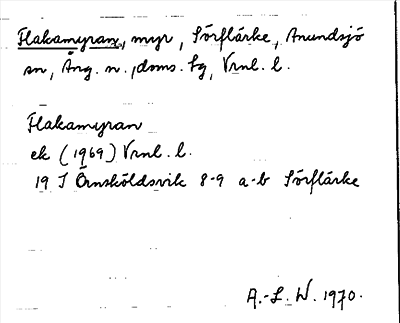 Flakamyran, myr, Sörflärke, Anundsjö
sn, Ång. n., doms. bg, Vrnl. l.
Flakamyran
ek (1969) Vrnl. l.
19 J Örnsköldsvik 8-9 a-b Sörflärke
A.-L. W. 1970.